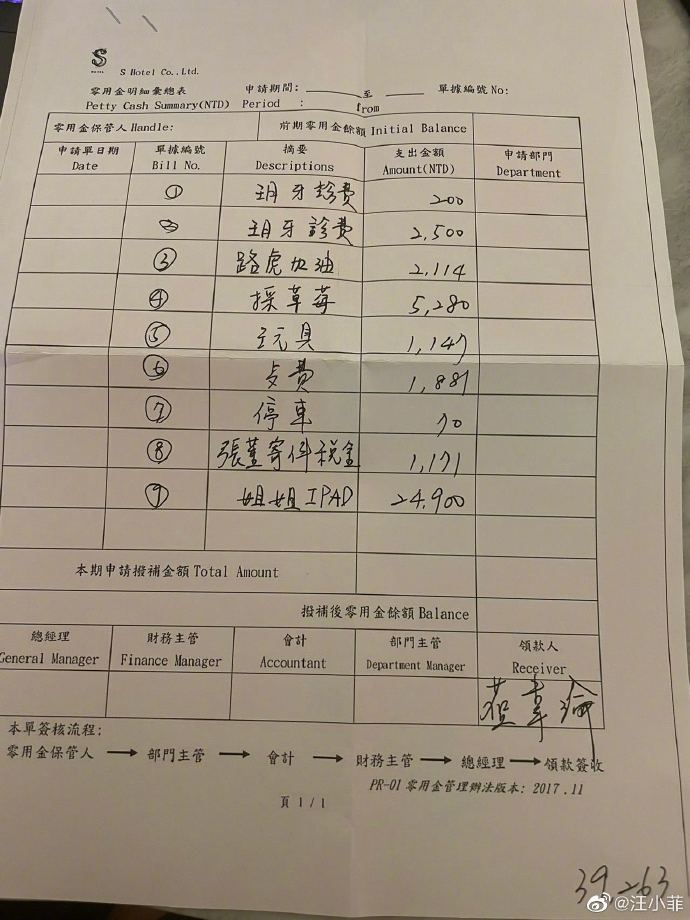 S
S Hotel Co.,Ltd.
零用金明細彙總表 申請期間: ______至______ 單據編號No:
Petty Cash Summary(NTD) Period : from
零用金保管人Handle: 前期零用金餘額Initial Balance
申請單日期 單據編號 摘要 支出金額 申請部門
Date Bill No. Descriptions Amount(NTD) Department
① 玥牙診費 200
② 玥牙診費 2,500
③ 路虎加油 2,114
④ 採草莓 5,280
⑤ 玩具 1,147
⑥ 1,881
⑦ 停車 70
⑧ 張蘭寄件稅金 1,171
⑨ 姐姐IPAD 24,900
本期申請撥補金額Total Amount
撥補後零用金餘額Balance
總經理 財務主管 會計 部門主管 領款人
General Manager Finance Manager Accountant Department Manager Receiver
本單簽核流程:
零用金保管人 → 部門主管 → 會計 → 財務主管 → 總經理 → 領款簽收
PR-01零用金管理辦法版本: 2017.11
頁 1/1
39,263
@汪小菲